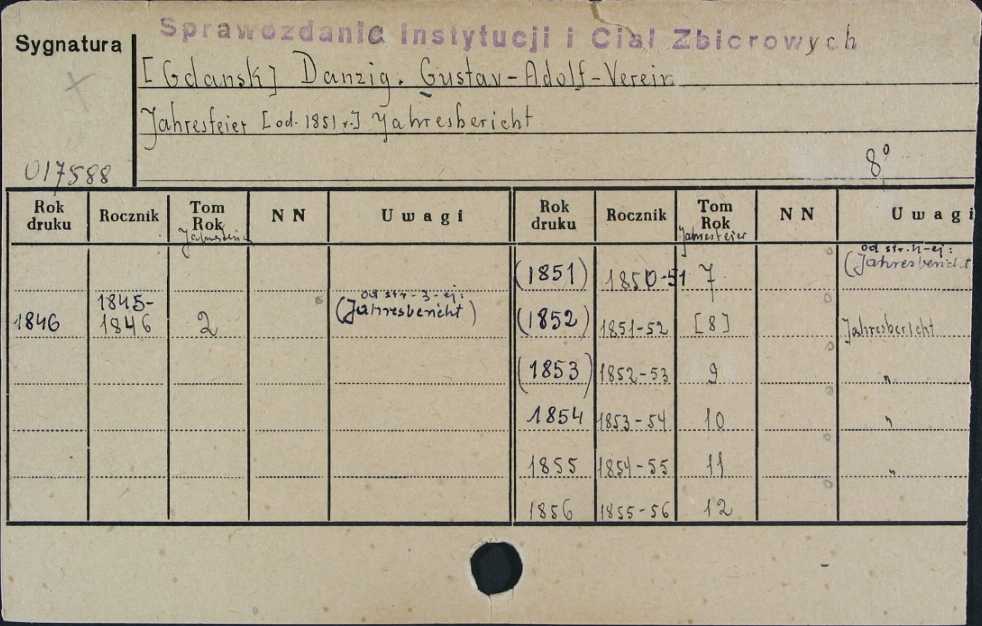 Sprawozdania Instytucji i Ciał Zbiorowych
Sygnatura
[Gdansk] Danzig. Gustav-Adolf-Verein
Jahresfeier [od. 1851 r.] Jahresbericht
017588
8°
Rok druku Rocznik Tom Rok N N Uwagi Rok druku Rocznik Tom Rok N N Uwagi
Jahresfeier Jahresfeier
od str. 4-ej:
(1851) 1850-51 7 (Jahresbericht
1845- od str. 3-ej:
1846 1846 2 (Jahresbericht) (1852) 1851-52 [8] Jahresbericht
(1853) 1852-53 9 "
1854 1853-54 10 "
1855 1854-55 11 "
1856 1855-56 12